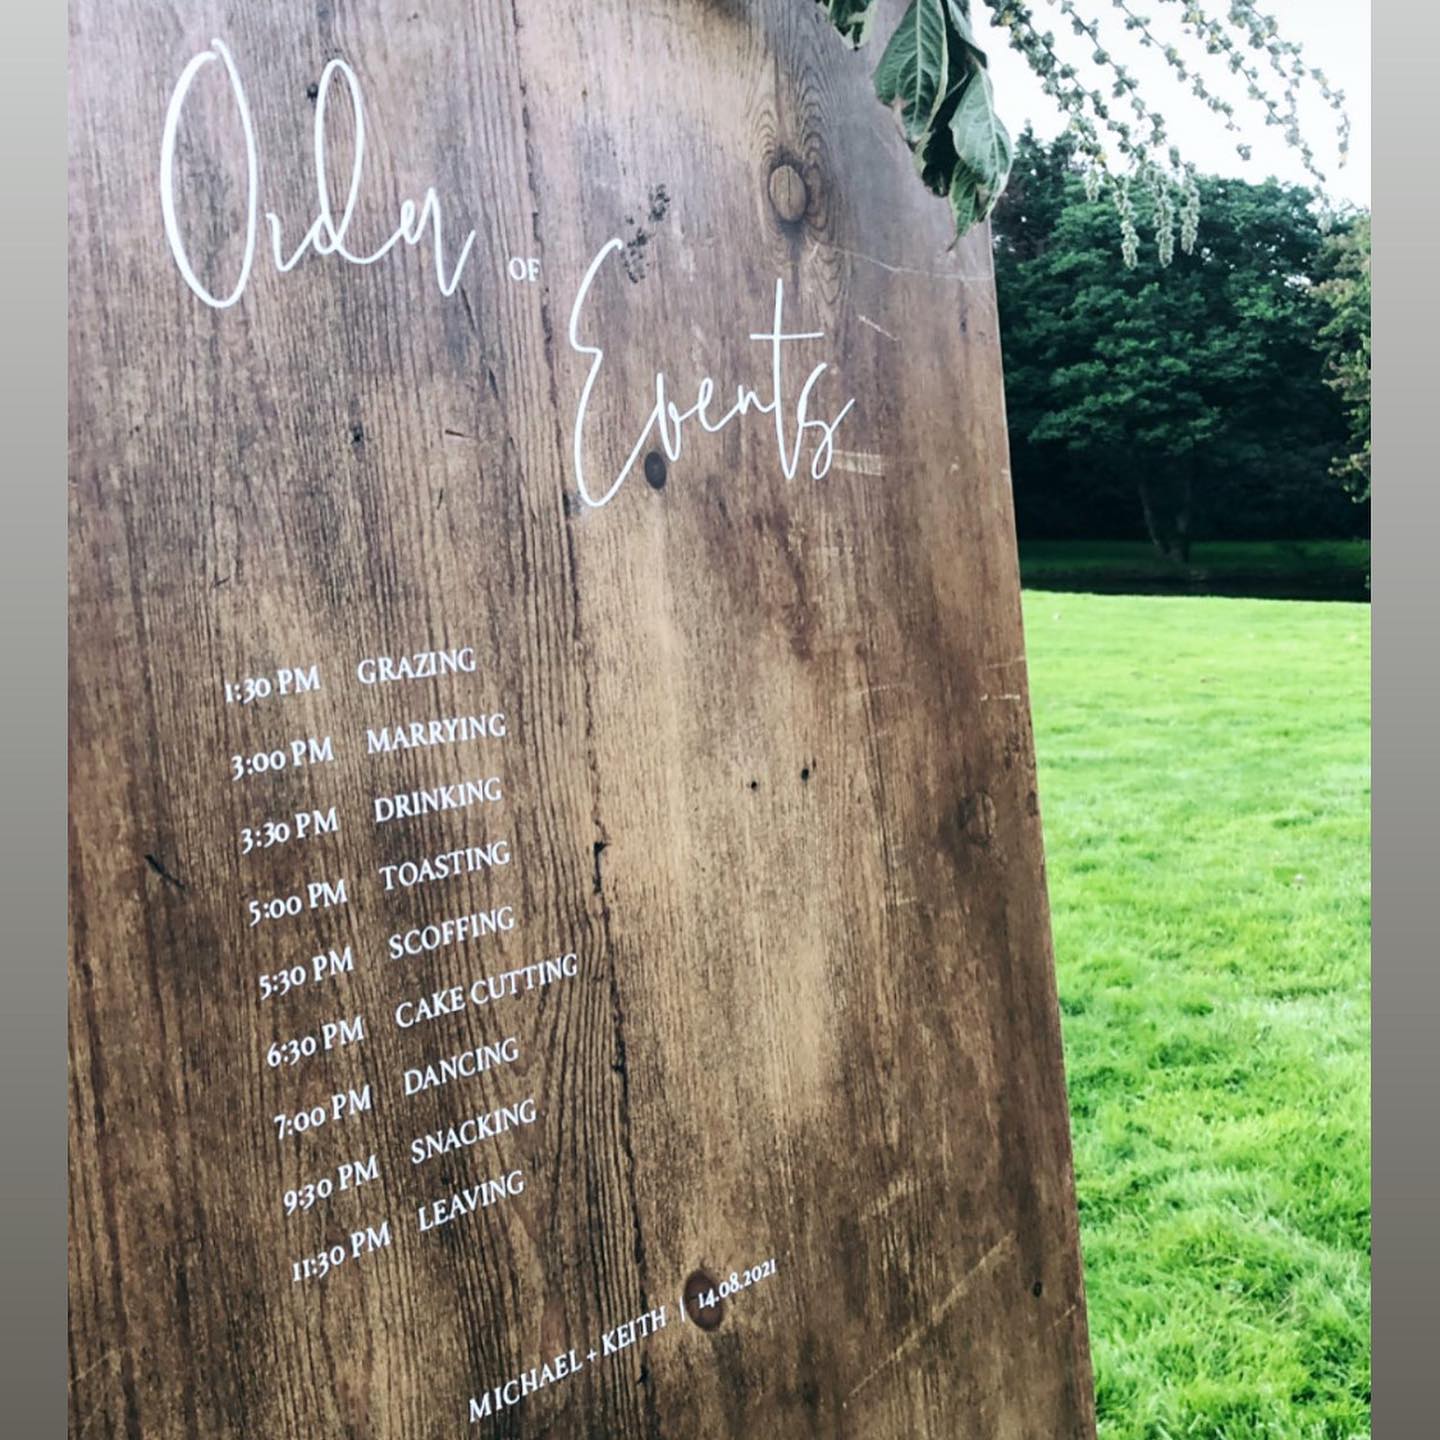 Order OF Events
1:30 PM GRAZING
3:00 PM MARRYING
3:30 PM DRINKING
5:00 PM TOASTING
5:30 PM SCOFFING
6:30 PM CAKE CUTTING
7:00 PM DANCING
9:30 PM SNACKING
11:30 PM LEAVING
MICHAEL + KEITH | 14.08.2021